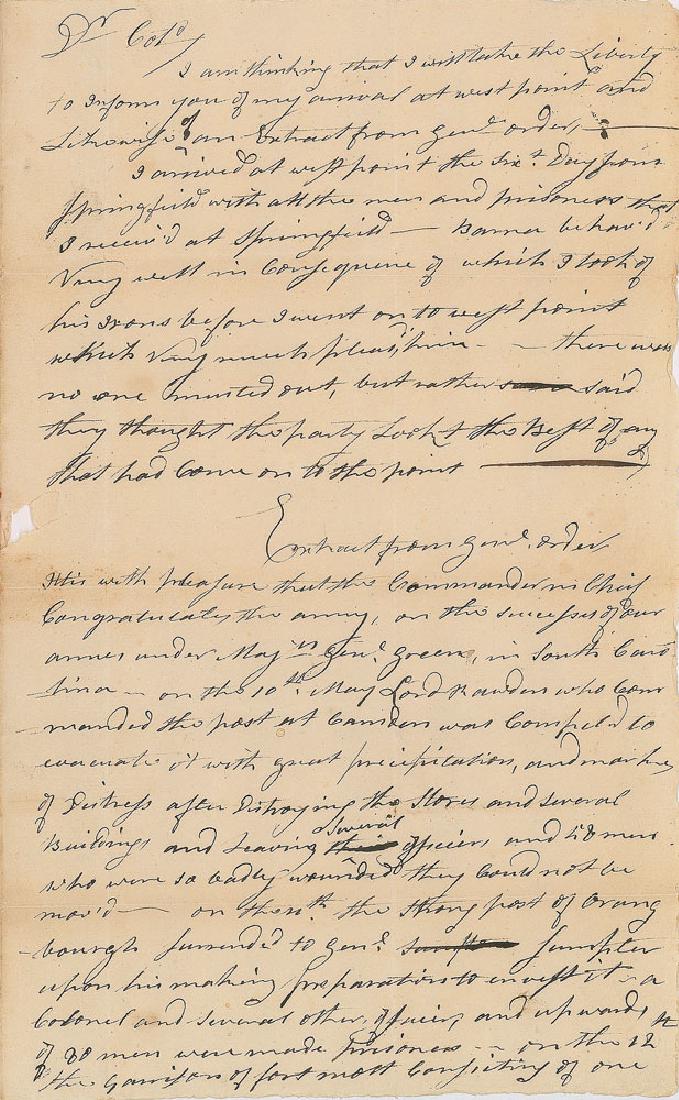 Dr Colo
I am thinking that I will take the Liberty
to Inform you of my arrival at west point and
Likewise of an Extract from Genl order,
I arrived at west point the Sixt Day from
Springfield with all the men and prisoners that
I receiv'd at Springfield — behav'd
Very well in Consequence of which I took of
his Irons before I went on to west point
which Very much pleasd him — there was
no one musted out, but rather said
they thought the party Lookt the Best of any
that had Come on to the point
Extract from Genl. order
Itis with pleasure that the Commander in Chief
Congratulates the army, on the successes of our
armes under Majr Genl Green, in South Caro
lina — on the 10th May Lord Rawden who Com
manded the post at Camden was Compel'd to
evacuate it with great precipitation, and markes
of Distress after Distroying the Stores and several
Buildings and Leaving several officers and 58 men
who were so badly wounded they Could not be
mov'd — on the 11th the strong post of Orang
bourgh surrend'd to Genl Sumpter
upon his making preparation to invest it — a
Colonel and several other officers and upwards
of 80 men were made prisoners — on the 12th
the Garrison of fort mott Consisting of one